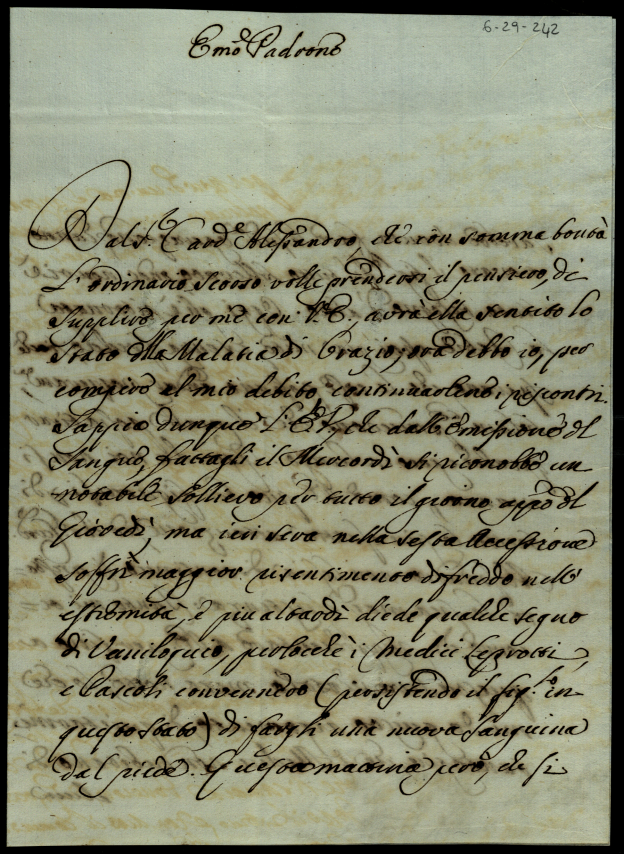 6-29-242
Emo͞ Padrone
Dal S.r Card.e Alessandro, che con somma bontà
l'ordinario scorso volle prendersi il pensiero, di
supplire per me con V.E., avrà ella sentito lo
stato della Malatia di Orazio; ora debbo io, per
compire al mio debito, continuarlene i riscontri.
Sappia dunque l'E.V., che dall'emissione del
sangue, fattagli il Mercordì si riconobbe un
notabile sollievo per tutto il giorno appo del
Giovedì, ma ieri sera nella sesta Accessione
soffrì maggior risentimento di freddo nell'
estremità, e più altardi diede qualche segno
di Vaniloquio, perlocchè i Medici Leprotti,
e Pascoli convennero (persistendo il sig.re in
questo stato) di fargli una nuova sanguina
dal piede. Questa mattina però, che si